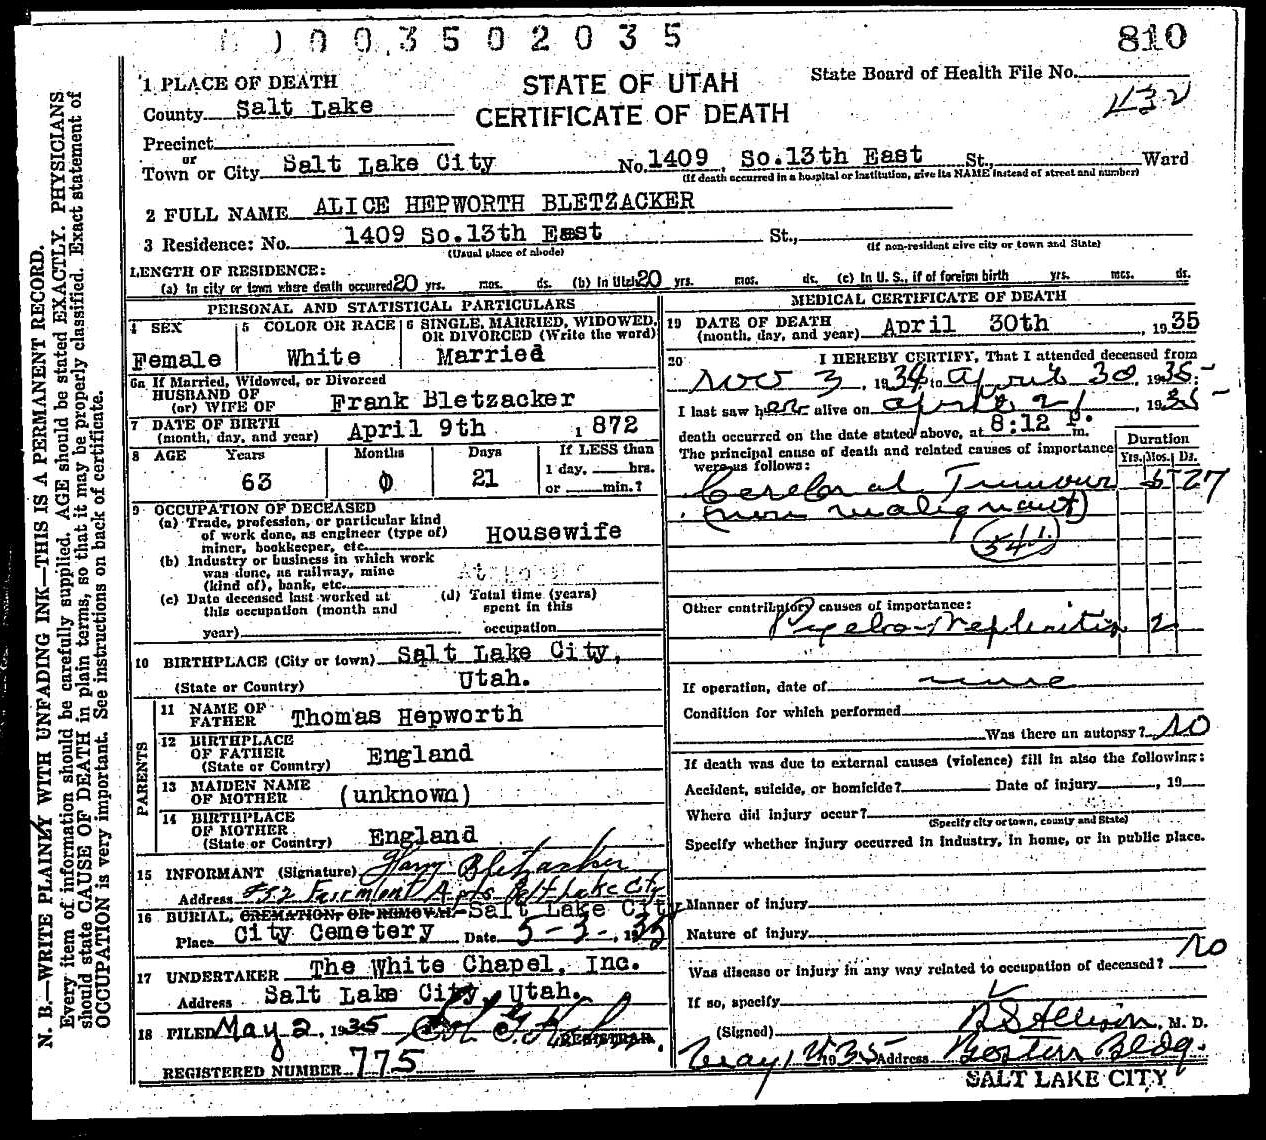 0 0 3 5 0 2 0 3 5
810
1 PLACE OF DEATH
STATE OF UTAH
CERTIFICATE OF DEATH
State Board of Health File No.
432
County Salt Lake
Precinct
or
Town or City Salt Lake City No. 1409 So. 13th East St., Ward
(If death occurred in a hospital or institution, give its NAME instead of street and number)
2 FULL NAME ALICE HEPWORTH BLETZACKER
3 Residence: No. 1409 So. 13th East St.,
(Usual place of abode) (If non-resident give city or town and State)
LENGTH OF RESIDENCE:
(a) In city or town where death occurred 20 yrs. mos. ds. (b) In Utah 20 yrs. mos. ds. (c) In U. S., if of foreign birth yrs. mos. ds.
PERSONAL AND STATISTICAL PARTICULARS
4 SEX
Female
5 COLOR OR RACE
White
6 SINGLE, MARRIED, WIDOWED, OR DIVORCED (Write the word)
Married
6a If Married, Widowed, or Divorced
HUSBAND OF
(or) WIFE OF Frank Bletzacker
7 DATE OF BIRTH
(month, day, and year) April 9th 1872
8 AGE Years Months Days If LESS than
63 0 21 1 day, hrs.
or min.?
9 OCCUPATION OF DECEASED
(a) Trade, profession, or particular kind
of work done, as engineer (type of)
miner, bookkeeper, etc. Housewife
(b) Industry or business in which work
was done, as railway, mine
(kind of), bank, etc.
(c) Date deceased last worked at
this occupation (month and
year)
(d) Total time (years)
spent in this
occupation
10 BIRTHPLACE (City or town) Salt Lake City,
(State or Country) Utah.
PARENTS
11 NAME OF
FATHER Thomas Hepworth
12 BIRTHPLACE
OF FATHER England
(State or Country)
13 MAIDEN NAME
OF MOTHER (unknown)
14 BIRTHPLACE
OF MOTHER
(State or Country) England
15 INFORMANT (Signature) Harry Bletzacker
Address #32 Fairmont Apts Salt Lake City
16 BURIAL, CREMATION, OR REMOVAL Salt Lake City
Place City Cemetery Date 5-3-, 1935
17 UNDERTAKER The White Chapel, Inc.
Address Salt Lake City, Utah.
18 FILED May 2, 1935
REGISTRAR.
REGISTERED NUMBER 775
MEDICAL CERTIFICATE OF DEATH
19 DATE OF DEATH
(month, day, and year) April 30th, 1935
20 I HEREBY CERTIFY, That I attended deceased from
Nov 3, 1934 to April 30 1935
I last saw her alive on April 21, 1935
death occurred on the date stated above, at 8:12 P. m.
The principal cause of death and related causes of importance
were as follows:
Duration
Yrs. Mos. Ds.
Cerebral Tumour 5 27
(non malignant)
(54b)
Other contributory causes of importance:
Pyelo-Nephritis 2
If operation, date of none
Condition for which performed
Was there an autopsy? NO
If death was due to external causes (violence) fill in also the following:
Accident, suicide, or homicide? Date of injury , 19
Where did injury occur?
(Specify city or town, county and State)
Specify whether injury occurred in industry, in home, or in public place.
Manner of injury
Nature of injury
Was disease or injury in any way related to occupation of deceased? NO
If so, specify
(Signed) R S Allison, M. D.
May 1 1935 Address Boston Bldg.
SALT LAKE CITY
N. B.—WRITE PLAINLY WITH UNFADING INK—THIS IS A PERMANENT RECORD.
Every item of information should be carefully supplied. AGE should be stated EXACTLY. PHYSICIANS
should state CAUSE OF DEATH in plain terms, so that it may be properly classified. Exact statement of
OCCUPATION is very important. See instructions on back of certificate.